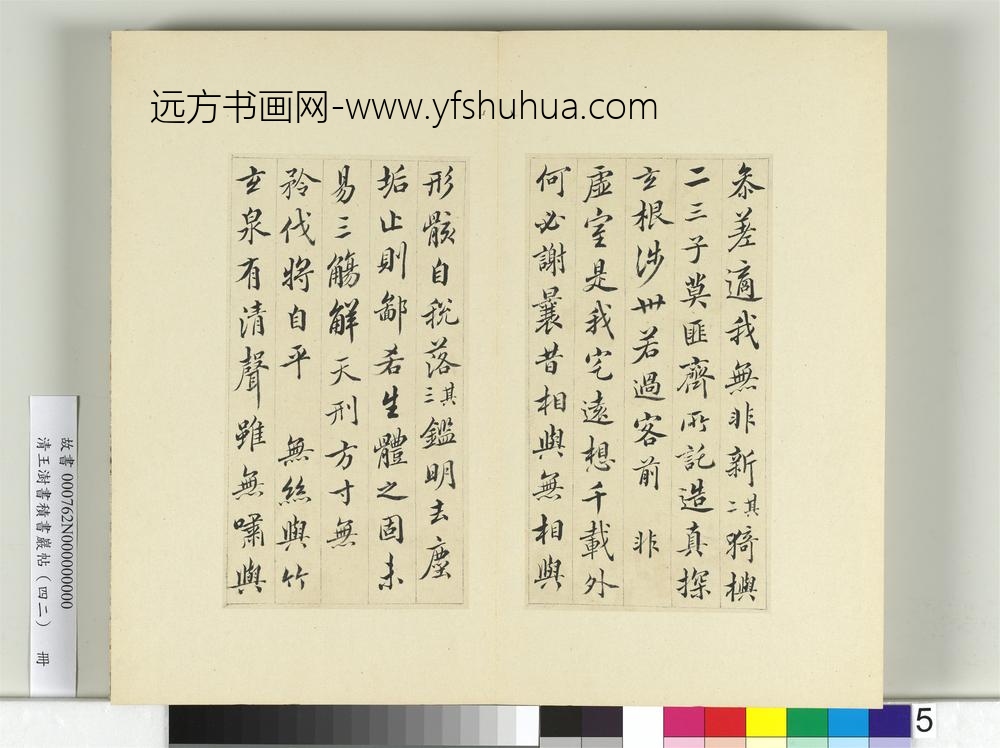 远方书画网-www.yfshuhua.com
叅差適我無非新其二猗歟
二三子莫匪齊所託造真探
玄根涉世若過客前 非
虛室是我宅遠想千載外
何必謝曩昔相與無相與
形骸自稅落其三鑑明去塵
垢止則鄙吝生體之固未
易三觴解天刑方寸無
矜伐將自平 無絲與竹
玄泉有清聲雖無嘯與
故書000762N000000000
清王澍書積書巖帖(四二) 冊
5